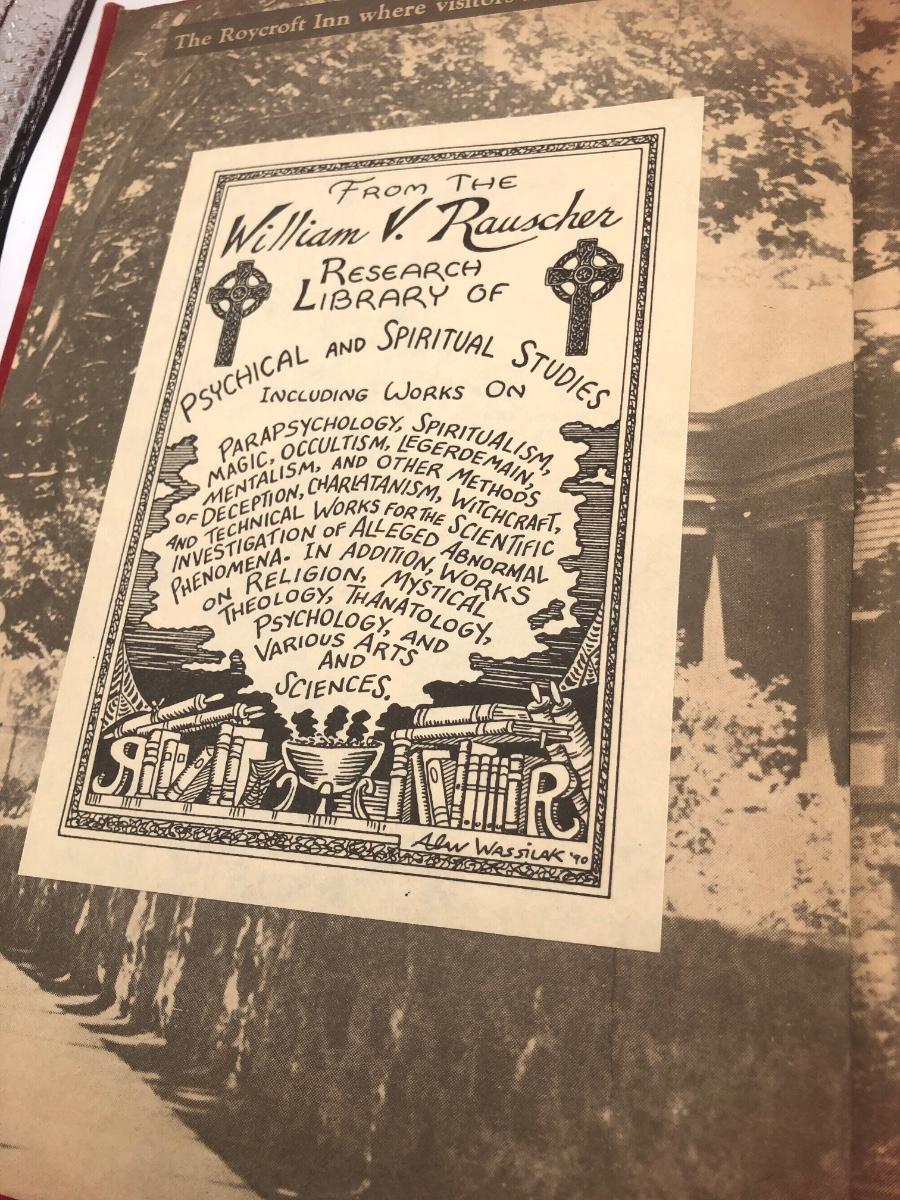 The Roycroft Inn where visitors
FROM THE
William V. Rauscher
RESEARCH
LIBRARY OF
PSYCHICAL AND SPIRITUAL STUDIES
INCLUDING WORKS ON
PARAPSYCHOLOGY, SPIRITUALISM,
MAGIC, OCCULTISM, LEGERDEMAIN,
MENTALISM, AND OTHER METHODS
OF DECEPTION, CHARLATANISM, WITCHCRAFT,
AND TECHNICAL WORKS FOR THE SCIENTIFIC
INVESTIGATION OF ALLEGED ABNORMAL
PHENOMENA. IN ADDITION, WORKS
ON RELIGION, MYSTICAL
THEOLOGY, THANATOLOGY,
PSYCHOLOGY, AND
VARIOUS ARTS
AND
SCIENCES.
R R
ALAN WASSILAK '90